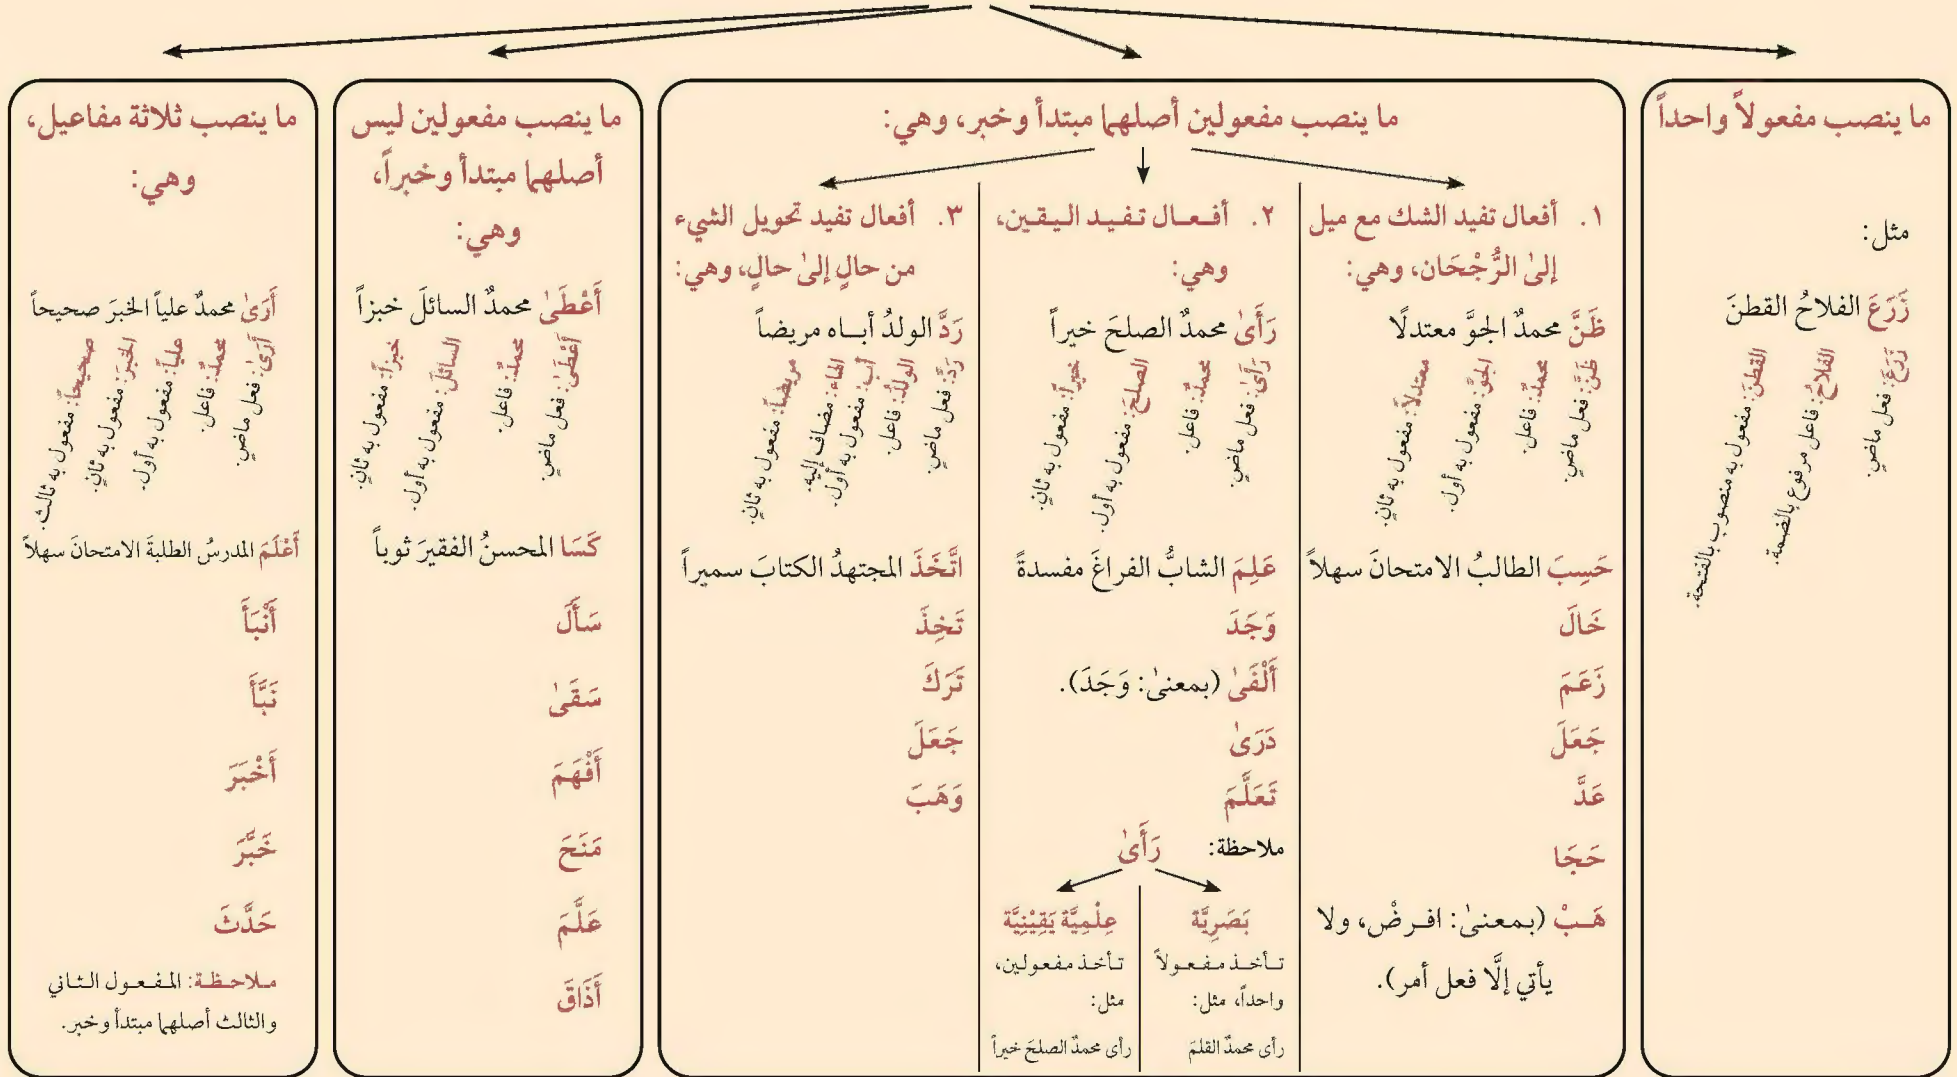 ما ينصب مفعولاً واحداً
مثل:
زَرَعَ الفلاحُ القطنَ
زَرَعَ: فعل ماضٍ.
الفلاحُ: فاعل مرفوع بالضمة.
القطنَ: مفعول به منصوب بالفتحة.
ما ينصب مفعولين أصلهما مبتدأ وخبر، وهي:
١. أفعال تفيد الشك مع ميل
إلىٰ الرُّجْحَان، وهي:
ظَنَّ محمدٌ الجوَّ معتدلًا
ظَنَّ: فعل ماضٍ.
محمدٌ: فاعل.
الجوَّ: مفعول به أول.
معتدلاً: مفعول به ثانٍ.
حَسِبَ الطالبُ الامتحانَ سهلاً
خَالَ
زَعَمَ
جَعَلَ
عَدَّ
حَجَا
هَـبْ (بمعنىٰ: افـرضْ، ولا
يأتي إلَّا فعل أمر).
٢. أفـعـال تـفـيـد الـيـقـين،
وهي:
رَأَىٰ محمدٌ الصلحَ خيراً
رَأَىٰ: فعل ماضٍ.
محمدٌ: فاعل.
الصلحَ: مفعول به أول.
خيراً: مفعول به ثانٍ.
عَلِمَ الشابُّ الفراغَ مفسدةً
وَجَدَ
أَلْفَىٰ (بمعنىٰ: وَجَدَ).
دَرَىٰ
تَعَلَّمَ
ملاحظة: رَأَىٰ
بَصَرِيَّة
تـأخـذ مـفـعـولاً
واحداً، مثل:
رأى محمدٌ القلمَ
عِلْمِيَّة يَقِيْنِيَّة
تـأخـذ مفعولين،
مثل:
رأى محمدٌ الصلحَ خيراً
٣. أفعال تفيد تحويل الشيء
من حالٍ إلىٰ حالٍ، وهي:
رَدَّ الولدُ أبـاه مريضاً
رَدَّ: فعل ماضٍ.
الولدُ: فاعل.
أب: مفعول به أول.
الهاء: مضاف إليه.
مريضاً: مفعول به ثانٍ.
اتَّخَذَ المجتهدُ الكتابَ سميراً
تَخِذَ
تَرَكَ
جَعَلَ
وَهَبَ
ما ينصب مفعولين ليس
أصلهما مبتدأ وخبراً،
وهي:
أَعْطَىٰ محمدٌ السائلَ خبزاً
أَعْطَىٰ: فعل ماضٍ.
محمدٌ: فاعل.
السائلَ: مفعول به أول.
خبزاً: مفعول به ثانٍ.
كَسَا المحسنُ الفقيرَ ثوباً
سَأَلَ
سَقَىٰ
أَفْهَمَ
مَنَحَ
عَلَّمَ
أَذَاقَ
ما ينصب ثلاثة مفاعيل،
وهي:
أَرَىٰ محمدٌ علياً الخبرَ صحيحاً
أَرَىٰ: فعل ماضٍ.
محمدٌ: فاعل.
علياً: مفعول به أول.
الخبرَ: مفعول به ثانٍ.
صحيحاً: مفعول به ثالث.
أَعْلَمَ المدرسُ الطلبةَ الامتحانَ سهلاً
أَنْبَأَ
نَبَّأَ
أَخْبَرَ
خَبَّرَ
حَدَّثَ
مـلاحـظـة: المـفـعـول الـثـاني
والثالث أصلهما مبتدأ وخبر.